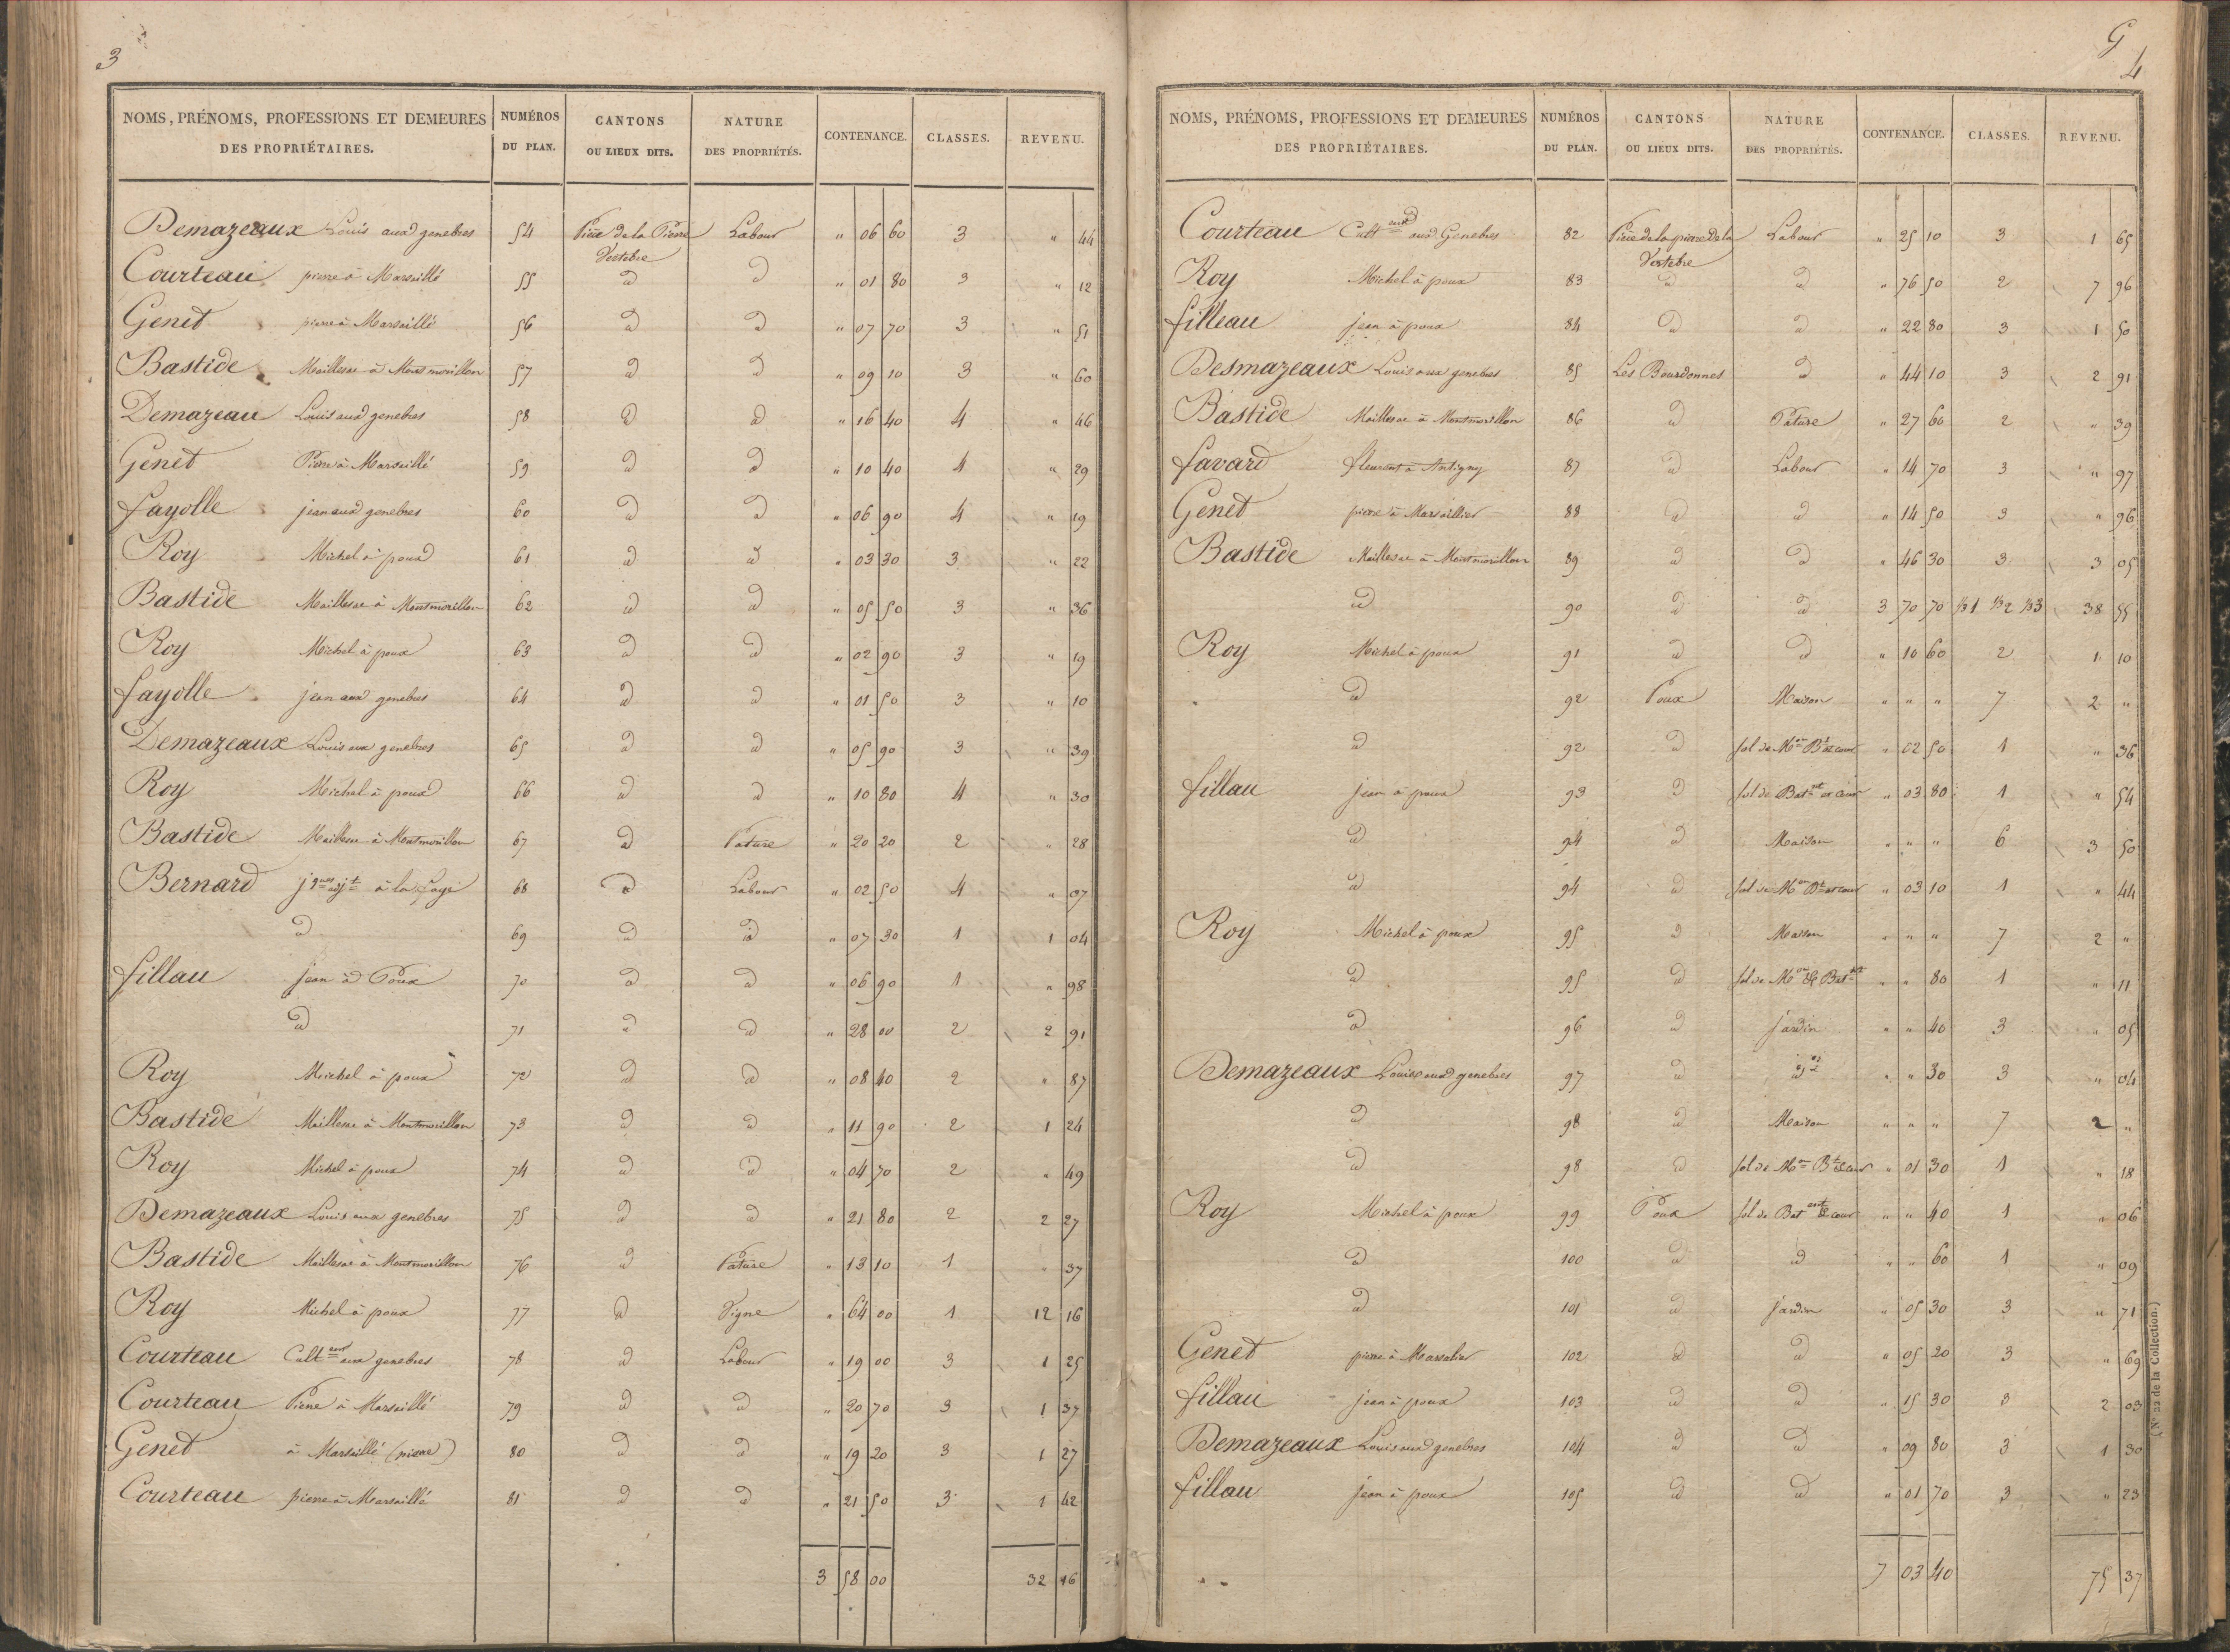 3
NOMS, PRÉNOMS, PROFESSIONS ET DEMEURES DES PROPRIÉTAIRES. NUMÉROS DU PLAN. CANTONS OU LIEUX DITS. NATURE DES PROPRIÉTÉS. CONTENANCE. CLASSES. REVENU.
Demazeaux Louis aux genebres 54 Pièce de la Pierre Labour " 06 60 3 " 44
d'ertebre
Courteau pierre à Marseillé 55 id id " 01 80 3 " 12
Genet pierre à Marsaillé 56 id id " 07 70 3 " 51
Bastide Maillesac à Montmorillon 57 id id " 09 10 3 " 60
Demazeau Louis aux genebres 58 id id " 16 40 4 " 46
Genet Pierre à Marseillé 59 id id " 10 40 4 " 29
fayolle jean aux genebres 60 id id " 06 90 4 " 19
Roy Michel à poux 61 id id " 03 30 3 " 22
Bastide Maillesac à Montmorillon 62 id id " 05 50 3 " 36
Roy Michel à poux 63 id id " 02 90 3 " 19
fayolle jean aux genebres 64 id id " 01 50 3 " 10
Demazeaux Louis aux genebres 65 id id " 05 90 3 " 39
Roy Michel à poux 66 id id " 10 80 4 " 30
Bastide Maillesac à Montmorillon 67 id Pature " 20 20 2 " 28
Bernard jques adjt à la faye 68 id Labour " 02 50 4 " 07
id 69 id id " 07 30 1 1 04
fillau jean à Poux 70 id id " 06 90 1 " 98
id 71 id id " 28 00 2 2 91
Roy Michel à poux 72 id id " 08 40 2 " 87
Bastide Maillesac à Montmorillon 73 id id " 11 90 2 1 24
Roy Michel à poux 74 id id " 04 70 2 " 49
Demazeaux Louis aux genebres 75 id id " 21 80 2 2 27
Bastide Maillesac à Montmorillon 76 id Pature " 13 10 1 " 37
Roy Michel à poux 77 id Vigne " 64 00 1 12 16
Courteau Culteur aux genebres 78 id Labour " 19 00 3 1 25
Courteau Pierre à Marseillé 79 id id " 20 70 3 1 37
Genet à Marsaillé (pierre) 80 id id " 19 20 3 1 27
Courteau pierre à Marsaillé 81 id id " 21 50 3 1 42
3 58 00 32 16
G
4
NOMS, PRÉNOMS, PROFESSIONS ET DEMEURES DES PROPRIÉTAIRES. NUMÉROS DU PLAN. CANTONS OU LIEUX DITS. NATURE DES PROPRIÉTÉS. CONTENANCE. CLASSES. REVENU.
Courteau Culteur aux Genebres 82 Pièce de la pierre de la Labour " 25 10 3 1 65
d'ertebre
Roy Michel à poux 83 id id " 76 50 2 7 96
filleau jean à poux 84 id id " 22 80 3 1 50
Desmazeaux Louis aux genebres 85 Les Bourdonnes id " 44 10 3 2 91
Bastide Maillesac à Montmorillon 86 id Pature " 27 60 2 " 39
favard fleurent à Antigny 87 id Labour " 14 70 3 " 97
Genet pierre à Marsaillier 88 id id " 14 50 3 " 96
Bastide Maillesac à Montmorillon 89 id id " 46 30 3 3 05
id 90 id id 3 70 70 1/3 1 1/3 2 1/3 3 38 55
Roy Michel à poux 91 id id " 10 60 2 1 10
id 92 Poux Maison " " " 7 2 "
id 92 id sol de Mon Bt et cour " 02 50 1 " 36
fillau jean à poux 93 id sol de Batnt et cour " 03 80 1 " 54
id 94 id Maison " " " 6 3 50
id 94 id sol de Mon Bt et cour " 03 10 1 " 44
Roy Michel à poux 95 id Maison " " " 7 2 "
id 95 id sol de Mon & Batnt " " 80 1 " 11
id 96 id jardin " " 40 3 " 05
Demazeaux Louis aux genebres 97 id id " " 30 3 " 04
id 98 id Maison " " " 7 2 "
id 98 id sol de Mon Bt & cour " 01 30 1 " 18
Roy Michel à poux 99 Poux sol de Batent & cour " " 40 1 " 06
id 100 id id " " 60 1 " 09
id 101 id jardin " 05 30 3 " 71
Genet pierre à Marsalier 102 id id " 05 20 3 " 69
fillau jean à poux 103 id id " 15 30 3 2 03
Demazeaux Louis aux genebres 104 id id " 09 80 3 1 30
fillau jean à poux 105 id id " 01 70 3 " 23
7 03 40 75 37
(N° 22 de la Collection.)